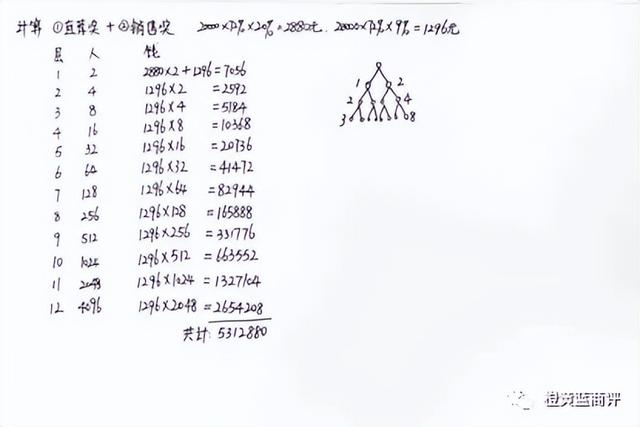 计算 ①直荐奖 + ②销售奖 20000×72%×20%=2880元. 20000×72%×9%=1296元
层 人 钱
1 2 2880×2+1296=7056
2 4 1296×2 =2592
3 8 1296×4 =5184
4 16 1296×8 =10368
5 32 1296×16 =20736
6 64 1296×32 =41472
7 128 1296×64 =82944
8 256 1296×128 =165888
9 512 1296×256 =331776
10 1024 1296×512 =663552
11 2048 1296×1024 =1327104
12 4096 1296×2048 =2654208
共计: 5312880
1 2
2 4
3 8
橙黄蓝商评